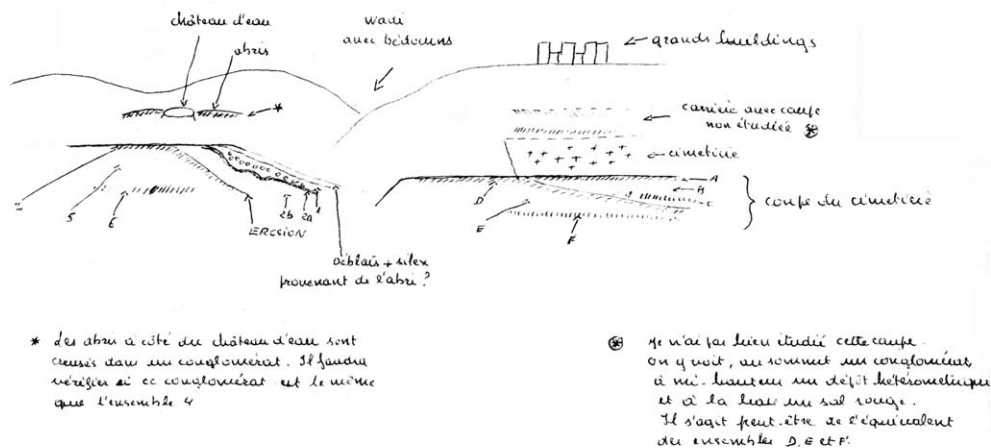 château d'eau
abris
wadi
avec bédouins
grands buildings
*
carrière avec coupe
non étudiée ⊛
cimetière
A
B
C
D
E
F
coupe du cimetière
5
E
2b
2a
1
EROSION
déblais + silex
provenant de l'abri ?
* Les abris à côté du château d'eau sont
creusés dans un conglomérat. Il faudra
vérifier si ce conglomérat est le même
que l'ensemble 4
⊛ Je n'ai pas bien étudié cette coupe.
On y voit, au sommet un conglomérat,
à mi-hauteur un dépôt hétérométrique
et à la base un sol rouge.
Il s'agit peut-être de l'équivalent
des ensembles D, E et F.